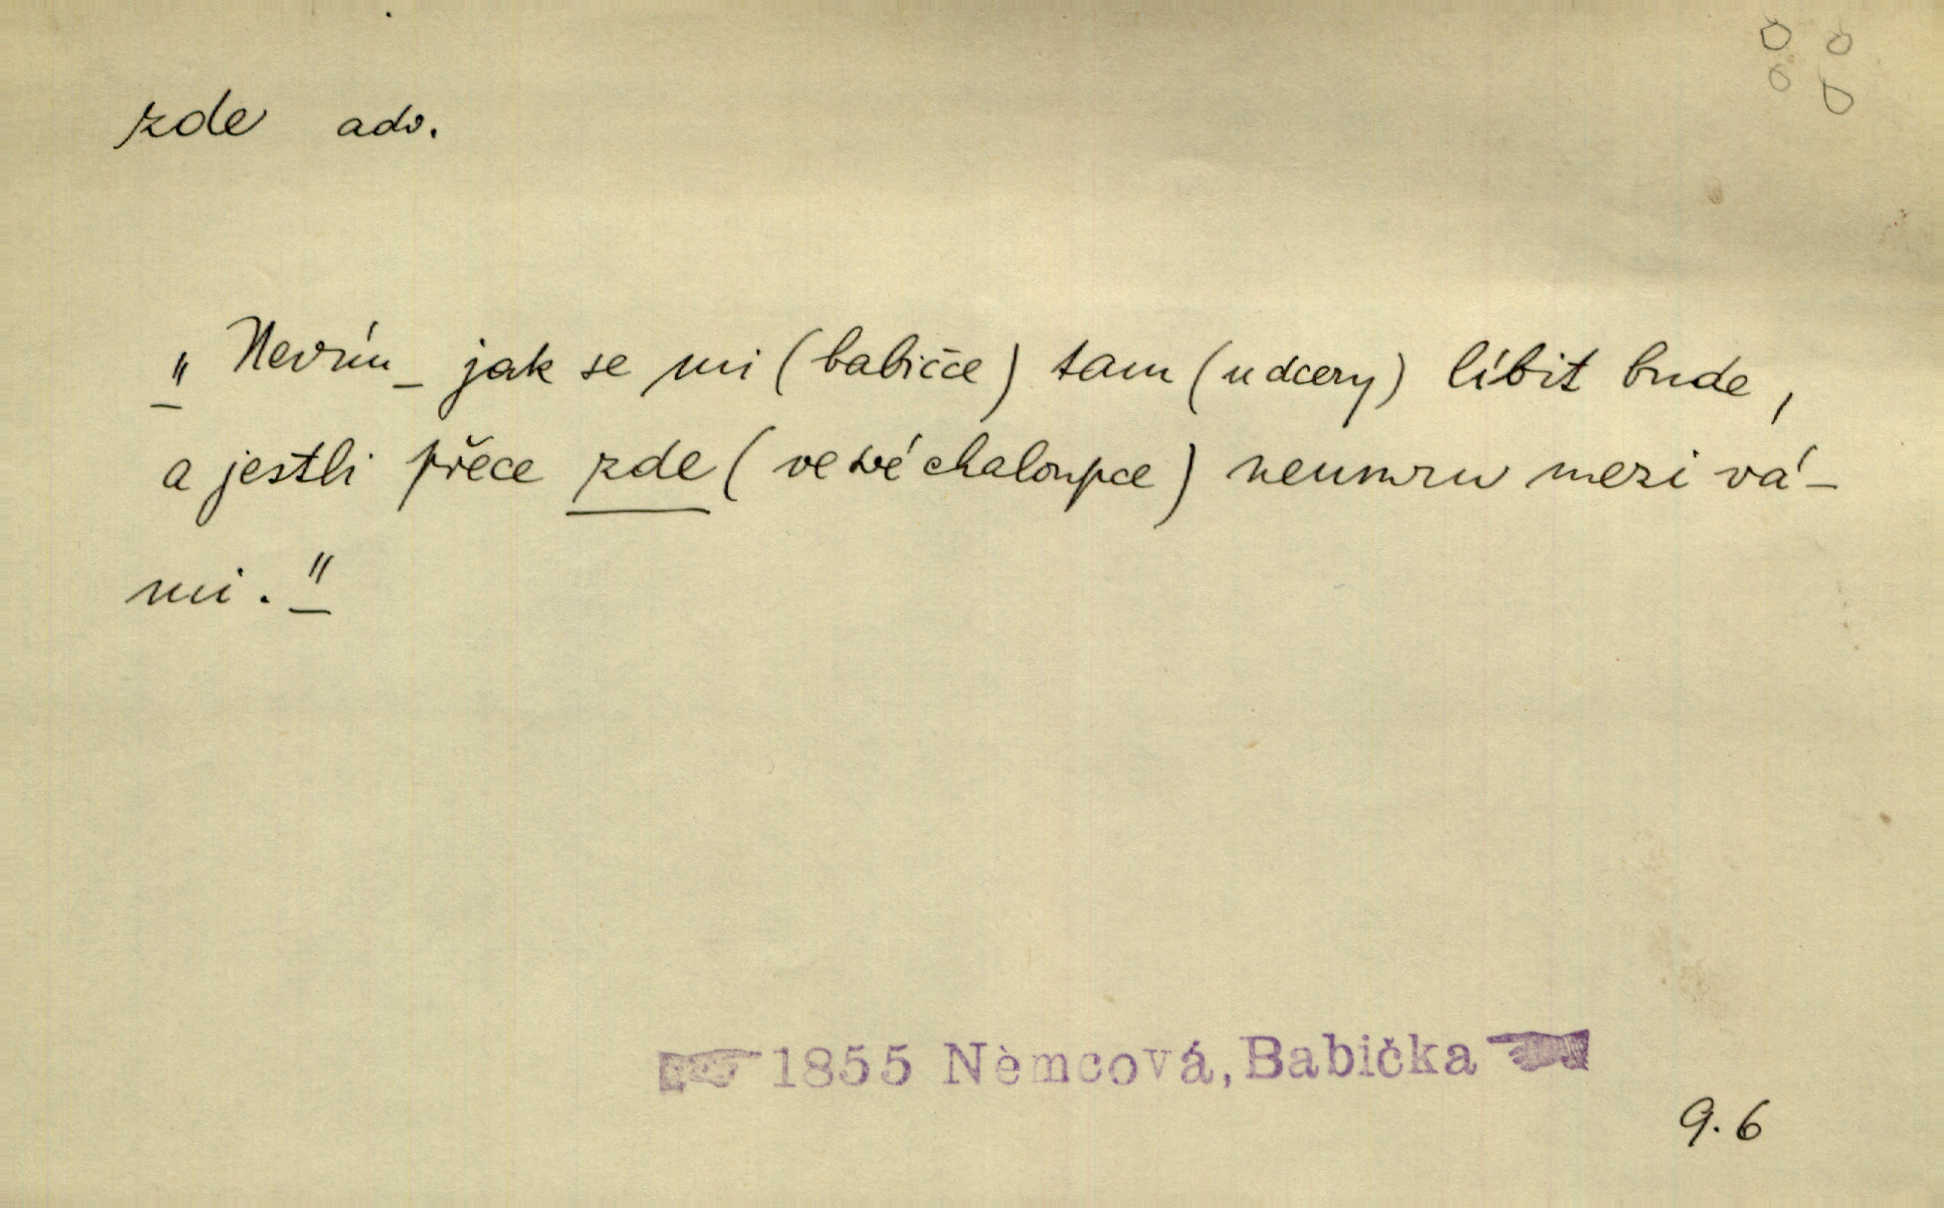 zde adv.
„Nevím_ jak se mi (babičce) tam (u dcery) líbit bude,
a jestli přece zde (ve své chaloupce) neumru mezi vá-
mi."
1855 Němcová, Babička
9.6